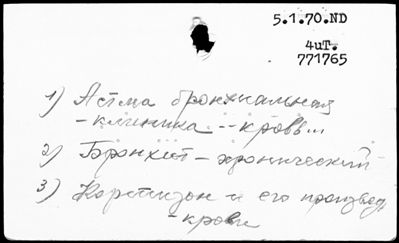 5.1.70.ND
4uT.
771765
1) Астма бронхиальная
- клиника -- кровь...
2) Бронхит - хронический
3) Кортизон и его производ.
- крови